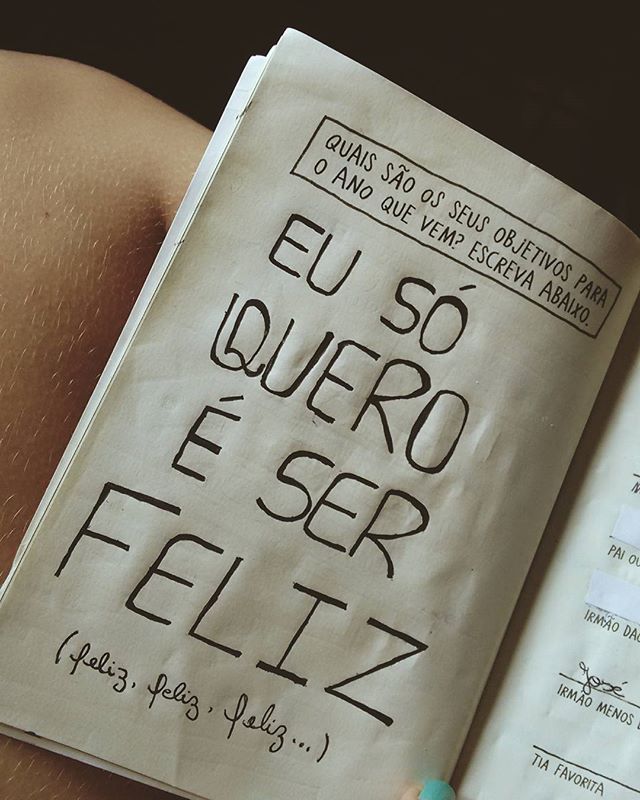 QUAIS SÃO OS SEUS OBJETIVOS PARA
O ANO QUE VEM? ESCREVA ABAIXO.
EU SÓ
QUERO
É SER
FELIZ
(feliz, feliz, feliz...)
PAI
IRMÃO
José
IRMÃO MENOS
TIA FAVORITA